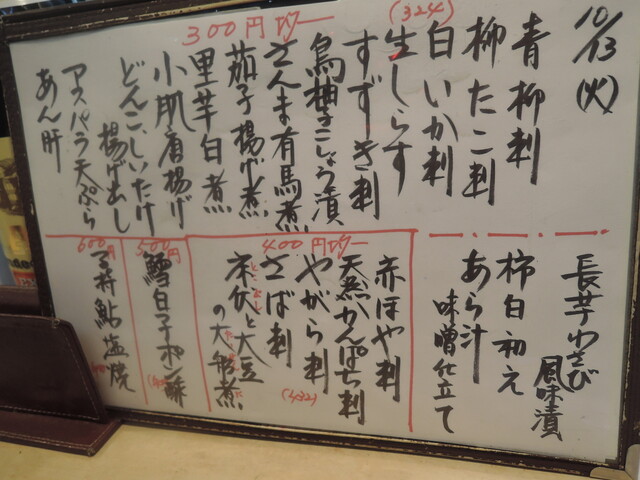 10/13(火)
300円均一
(324)
青柳刺
柳たこ刺
白いか刺
生しらす
すずき刺
鳥柚子こしょう漬
さんま有馬煮
茄子揚げ煮
里芋白煮
小肌唐揚げ
どんこしいたけ
揚げ出し
アスパラ天ぷら
あん肝
長芋わさび
風味漬
柿白和え
あら汁
味噌仕立て
400円均一
(432)
赤ほや刺
天然かんぱち刺
やがら刺
さば刺
と大豆
の大船煮
500円
鱈白子ポン酢
600円
鮎塩焼